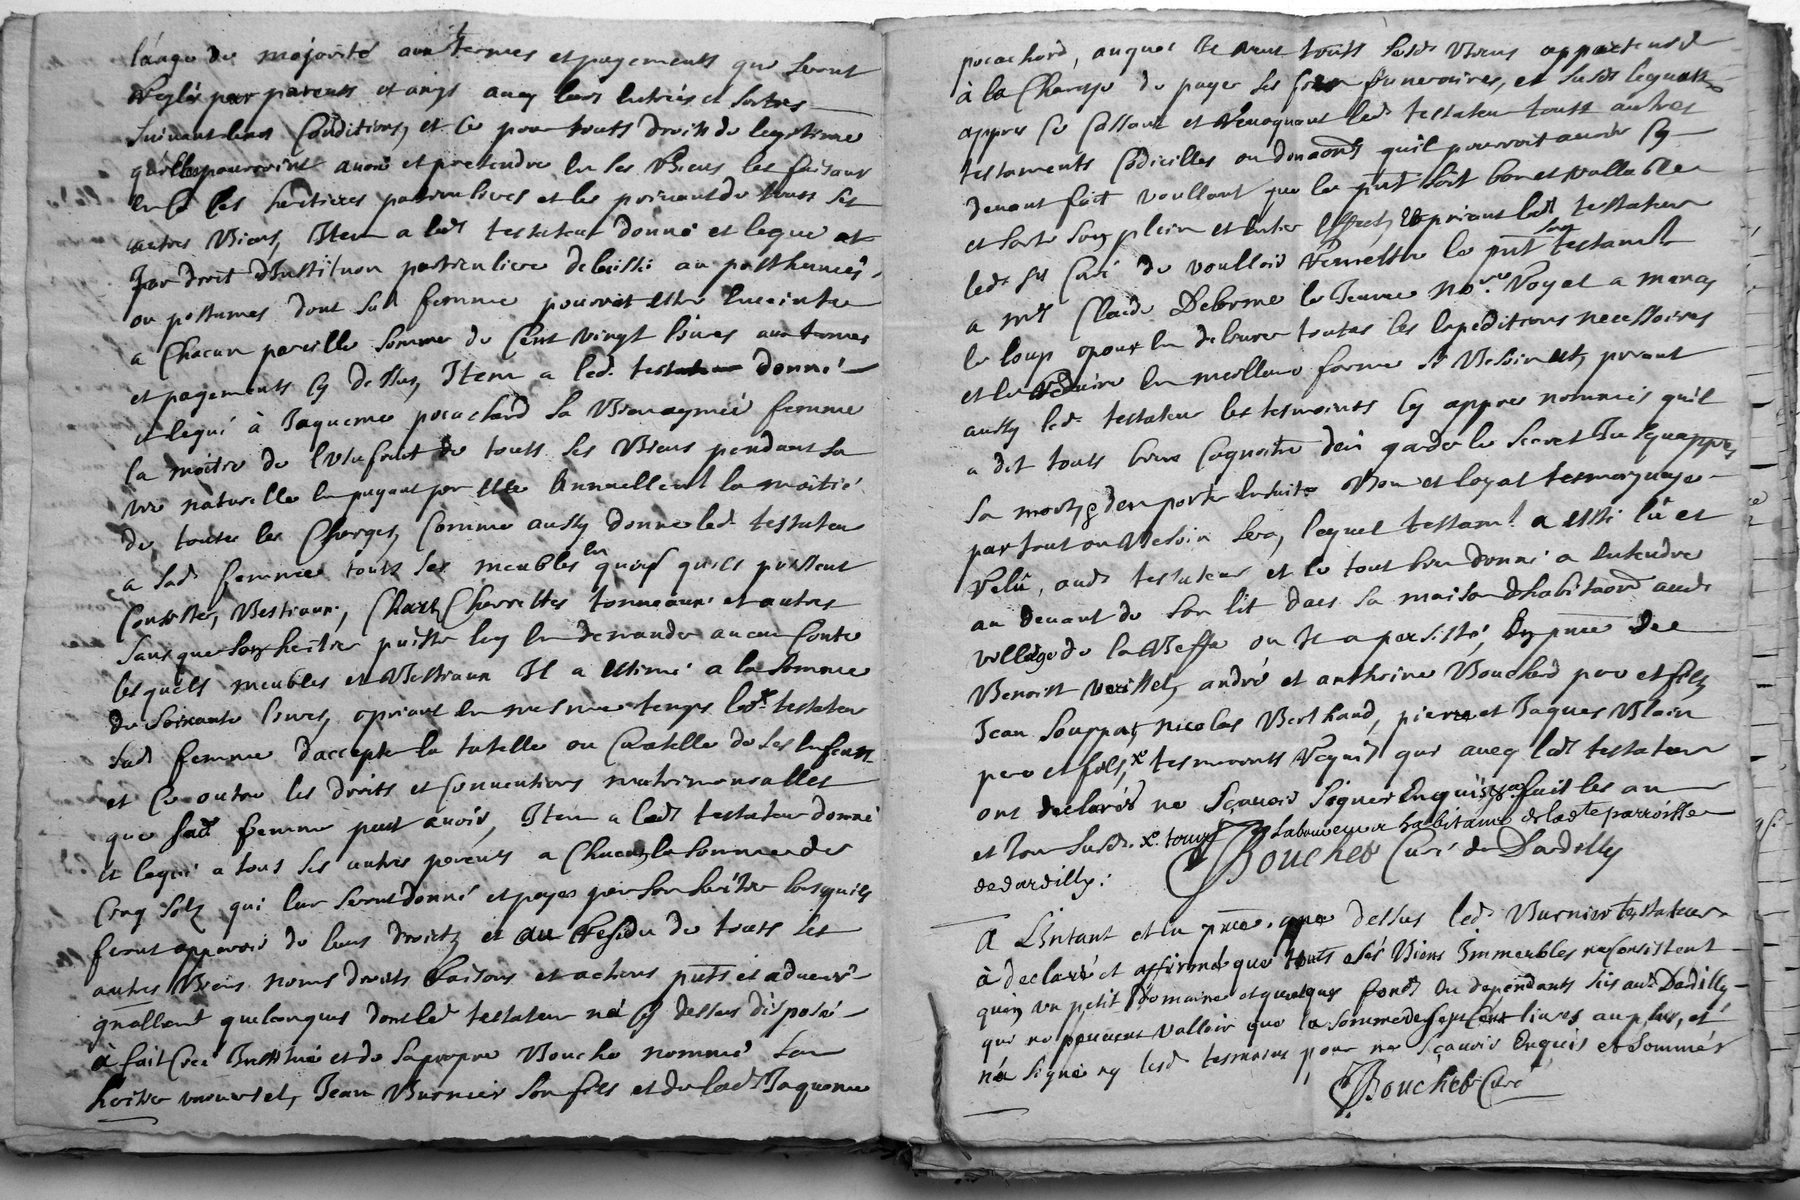 l'aage de majorité aux termes et payements qui seront
reglés par parents et amys avec leurs entrées et sortes
suivant leurs conditions, et ce pour touts droits de legitime
qu'elles pourroint avoir et pretendre en ses biens les faisant
en ce ses heritieres particulieres et les privant de touts ses
autres biens, Item a ledt testateur donné et legue et
par droit d'Institution particuliere delaissé au posthume
ou postumes dont sad femme pourroit estre enceinte
a chacun pareille somme de cent vingt livres aux termes
et payements cy dessus, Item a led. testateur donné
et legué à Jaqueme pocachard sa bienaymée femme
la moitié de l'usufruit de touts ses biens pendant sa
vie naturelle en payant par elle annuellemt la moitié
de toutes les charges, comme aussy donne led. testateur
a sad femme touts ses meubles en quoy quils puissent
consister, bestiaux, chart, cherrettes tonneaux et autres
sans que son heritier puisse luy en demander aucun conte
lesquels meubles et bestiaux Il a estimé a la somme
de soixante livres, & priant en mesme temps ledt testateur
sad femme d'accepter la tutelle ou curatelle de ses enfants
et ce outre les droits et conventions matrimonialles
que sad femme peut avoir, Item a ledt testateur donné
et legué a tous ses autres parents a chacun la somme de
cinq solz qui leur seront donné et payes par son heritier lorsquils
feront apparoir de leurs droictz et au residu de touts ses
autres biens noms droits raisons et actions pnts et advenir
gnallemt quelconques dont led testateur na cy dessus disposé
à fait créé Institué et de sa propre bouche nommé son
heritier universel, Jean Burnier son fils et de lad Jaqueme
pocachard, auquel Il veut touts susd biens appartenir
à la charge de payer ses frais funeraires, et susds legats
appres ce cassant et revoquant led testateur touts autres
testaments codicilles ou donaons quil pourroit avoir cy
devant fait voullant que le pnt soit bon et vallable
et sorte son plein et entier effect, & priant ledt testateur
led. sr curé de voulloir remettre le pnt son testamt
a mre Claude Delorme le Jeune nore. Royal a marcy
le loup pour en delivrer toutes les expeditions necessaires
et le rediger en meilleure forme si besoin est, priant
aussy led. testateur les tesmoints cy appres nommés qu'il
a dit touts bien cognoitre d'en garder le secret Jusqu'appres
sa mort, & d'en porter ensuite bon et loyal tesmoignage
par tout ou besoin sera, lequel testamt. a esté lû et
relû, aud testateur et le tout bien donné a entendre
au devant de son lit dans sa maison d'habitaon aud.
village de la Beffe ou Il a persisté, En pnce de
Benoist verisset, andré et anthoine Bouchard pere et fils,
Jean Souppat, nicolas Berthaud, pierre et Jaques Blain
pere et fils,x tesmoints requis qui aveq ledt testateur
ont declaréz ne sçavoir signer Enquis, fait les an
et Jour susds. x. touts laboureurs habitants de ladte parroisse
de dardilly. Bouchet Curé de Dardilly
A L'Instant et en pnce. que dessus led. Burnier testateur
à declaré et affirmé que touts ses biens Immeubles ne consistent
qu'en un petit domaine et quelques fonds en dependants sis aud Dardilly
qui ne peuvent valloir que la somme de sept cent livres au plus, et
n'a signé ny lesd tesmoins pour ne sçavoir Enquis et sommés
Bouchet Curé